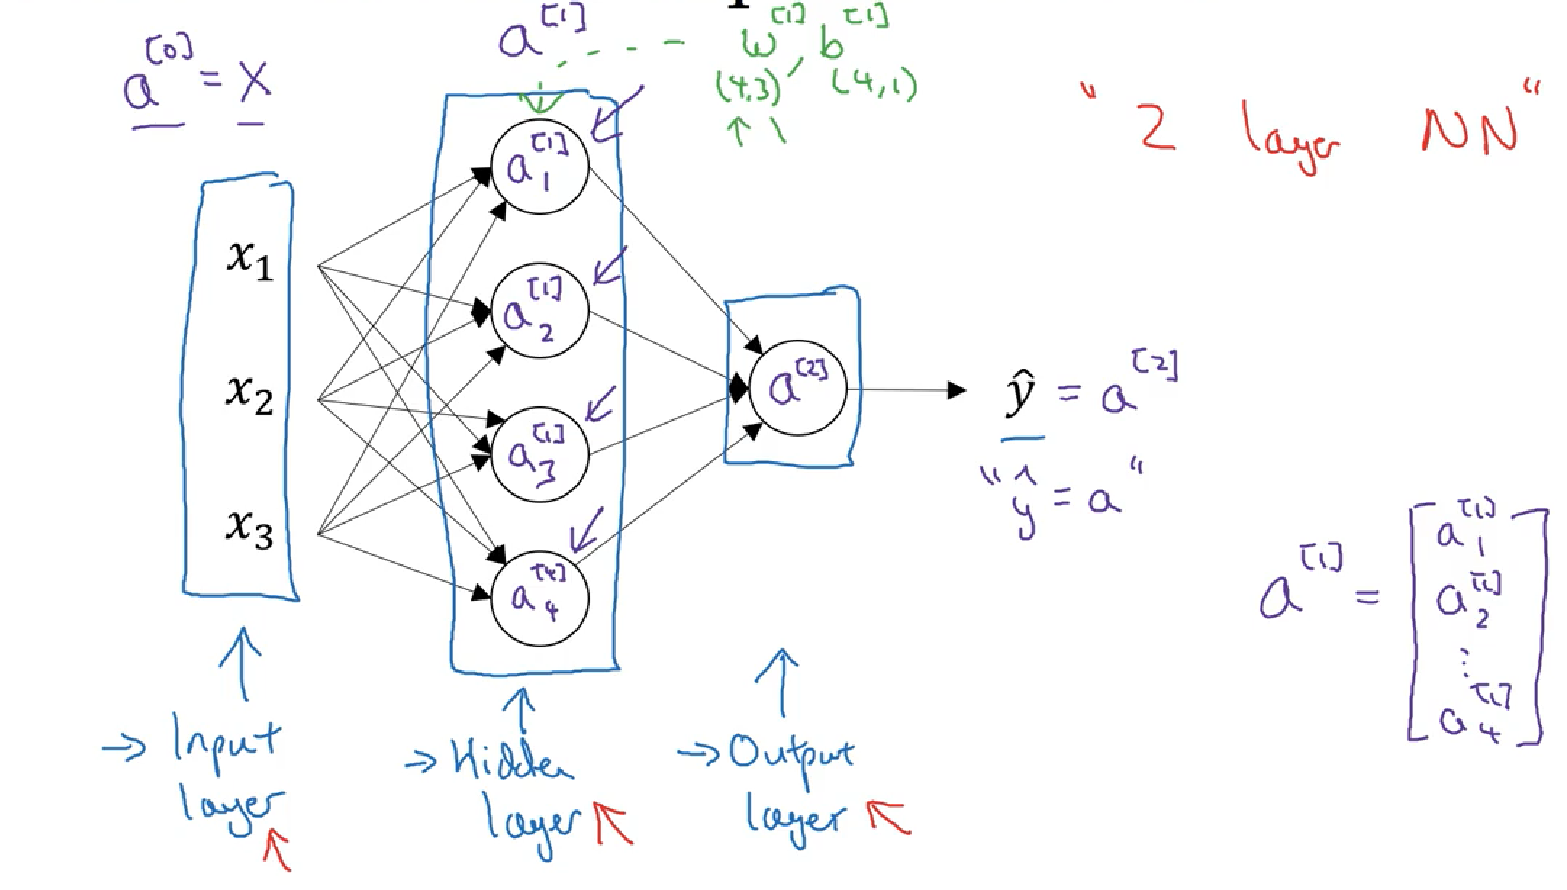 a^[0] = X
a^[1]
w^[1], b^[1]
(4,3) (4,1)
↑ \
" 2 layer NN "
x₁
x₂
x₃
a₁^[1]
a₂^[1]
a₃^[1]
a₄^[4]
a^[2]
ŷ = a^[2]
" ŷ = a "
a^[1] = [ a₁^[1]
a₂^[1]
⋮
a₄^[1] ]
→ Input layer
→ Hidden layer
→ Output layer